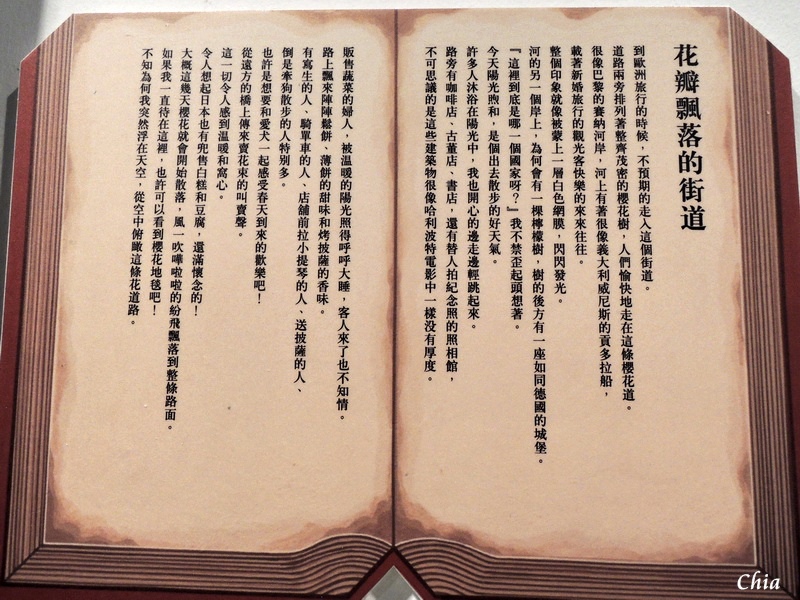 花瓣飄落的街道
到歐洲旅行的時候，不預期的走入這個街道。
道路兩旁排列著整齊茂密的櫻花樹，人們愉快地走在這條櫻花道。
很像巴黎的賽納河岸，河上有著很像義大利威尼斯的貢多拉船，
載著新婚旅行的觀光客快樂的來來往往。
整個印象就像被蒙上一層白色網膜，閃閃發光。
河的另一個岸上，為何會有一棵檸檬樹，樹的後方有一座如同德國的城堡。
『這裡到底是哪一個國家呀？』我不禁歪起頭想著。
今天陽光煦和，是個出去散步的好天氣。
許多人沐浴在陽光中，我也開心的邊走邊輕跳起來。
路旁有咖啡店、古董店、書店，還有替人拍紀念照的照相館，
不可思議的是這些建築物很像哈利波特電影中一樣没有厚度。
販售蔬菜的婦人，被温暖的陽光照得呼呼大睡，客人來了也不知情。
路上飄來陣陣鬆餅、薄餅的甜味和烤披薩的香味。
有寫生的人、騎單車的人、店舖前拉小提琴的人、送披薩的人、
倒是牽狗散步的人特别多。
也許是想要和愛犬一起感受春天到來的歡樂吧！
從遠方的橋上傳來賣花束的叫賣聲。
這一切令人感到温暖和窩心。
令人想起日本也有兜售白糕和豆腐，還滿懷念的！
大概這幾天櫻花就會開始散落，風一吹嘩啦啦的紛飛飄落到整條路面。
如果我一直待在這裡，也許可以看到櫻花地毯吧！
不知為何我突然浮在天空，從空中俯瞰這條花道路。
Chia